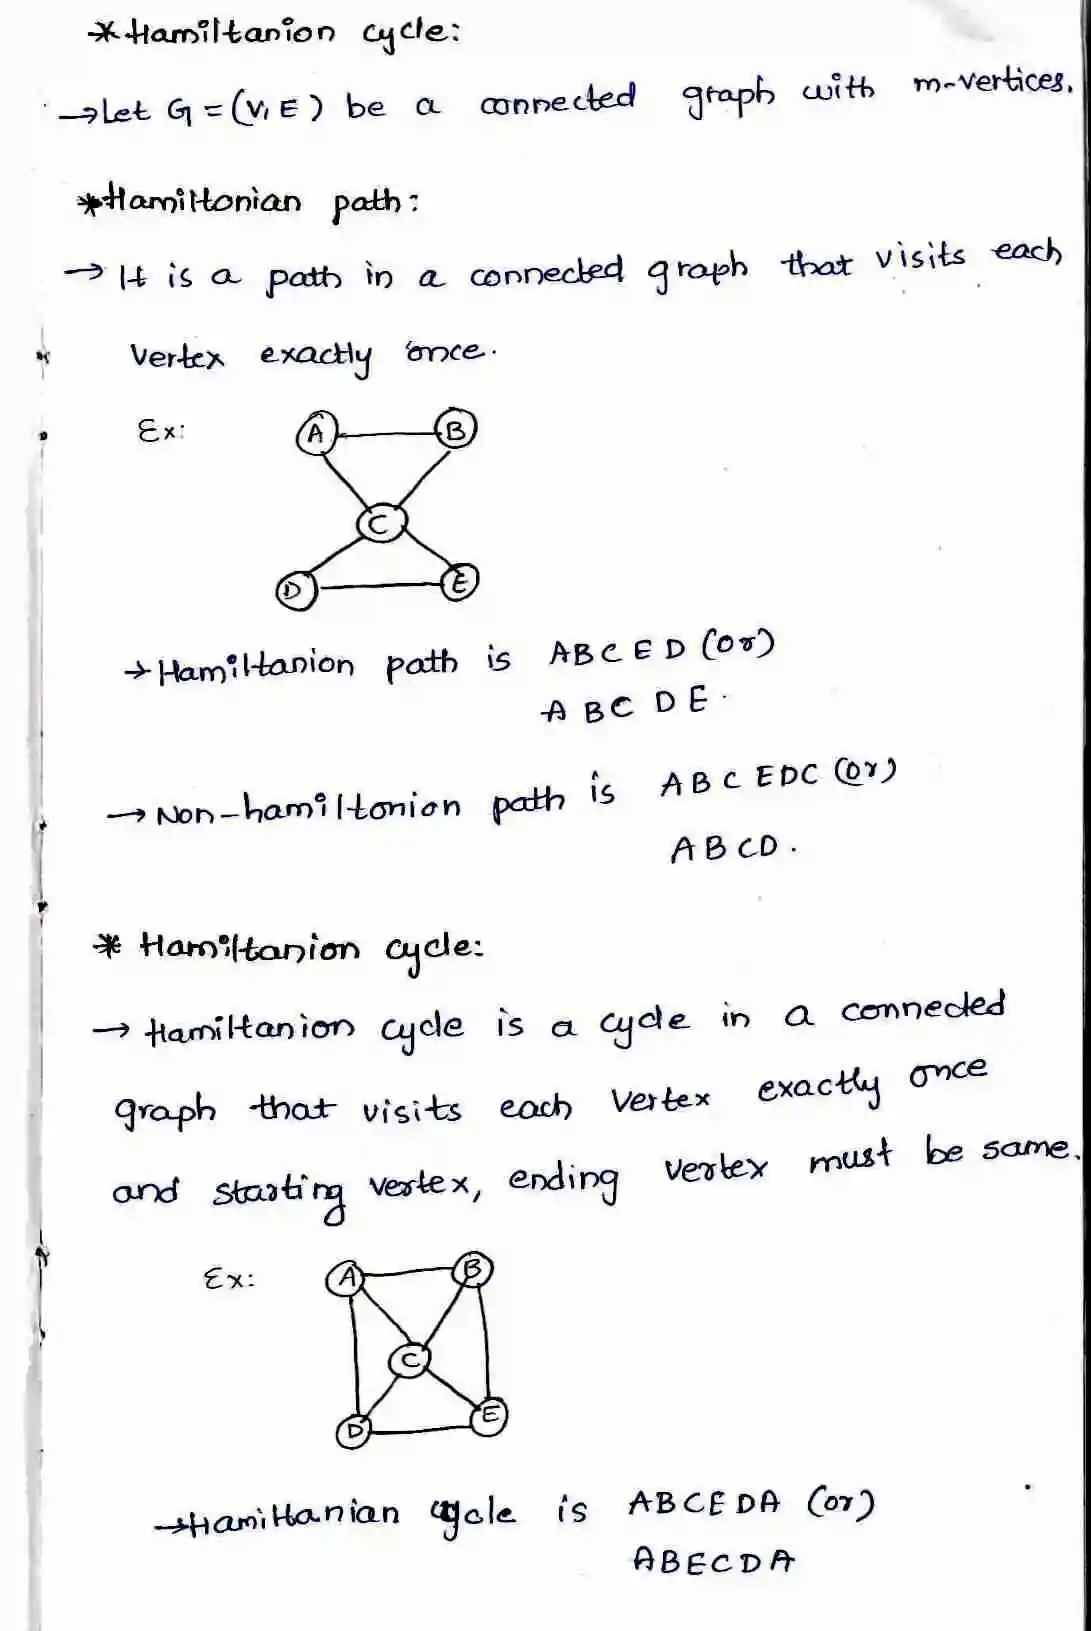 * Hamiltanion cycle:
→ Let G = (V, E) be a connected graph with m-vertices.
* Hamiltonian path:
→ It is a path in a connected graph that visits each
vertex exactly once.
Ex:
A B
C
D E
→ Hamiltanion path is ABCED (or)
ABCDE.
→ Non-hamiltonion path is ABCEDC (or)
ABCD.
* Hamiltanion cycle:
→ Hamiltanion cycle is a cycle in a connected
graph that visits each vertex exactly once
and starting vertex, ending vertex must be same.
Ex:
A B
C
D E
→ Hamiltanian cycle is ABCEDA (or)
ABECDA